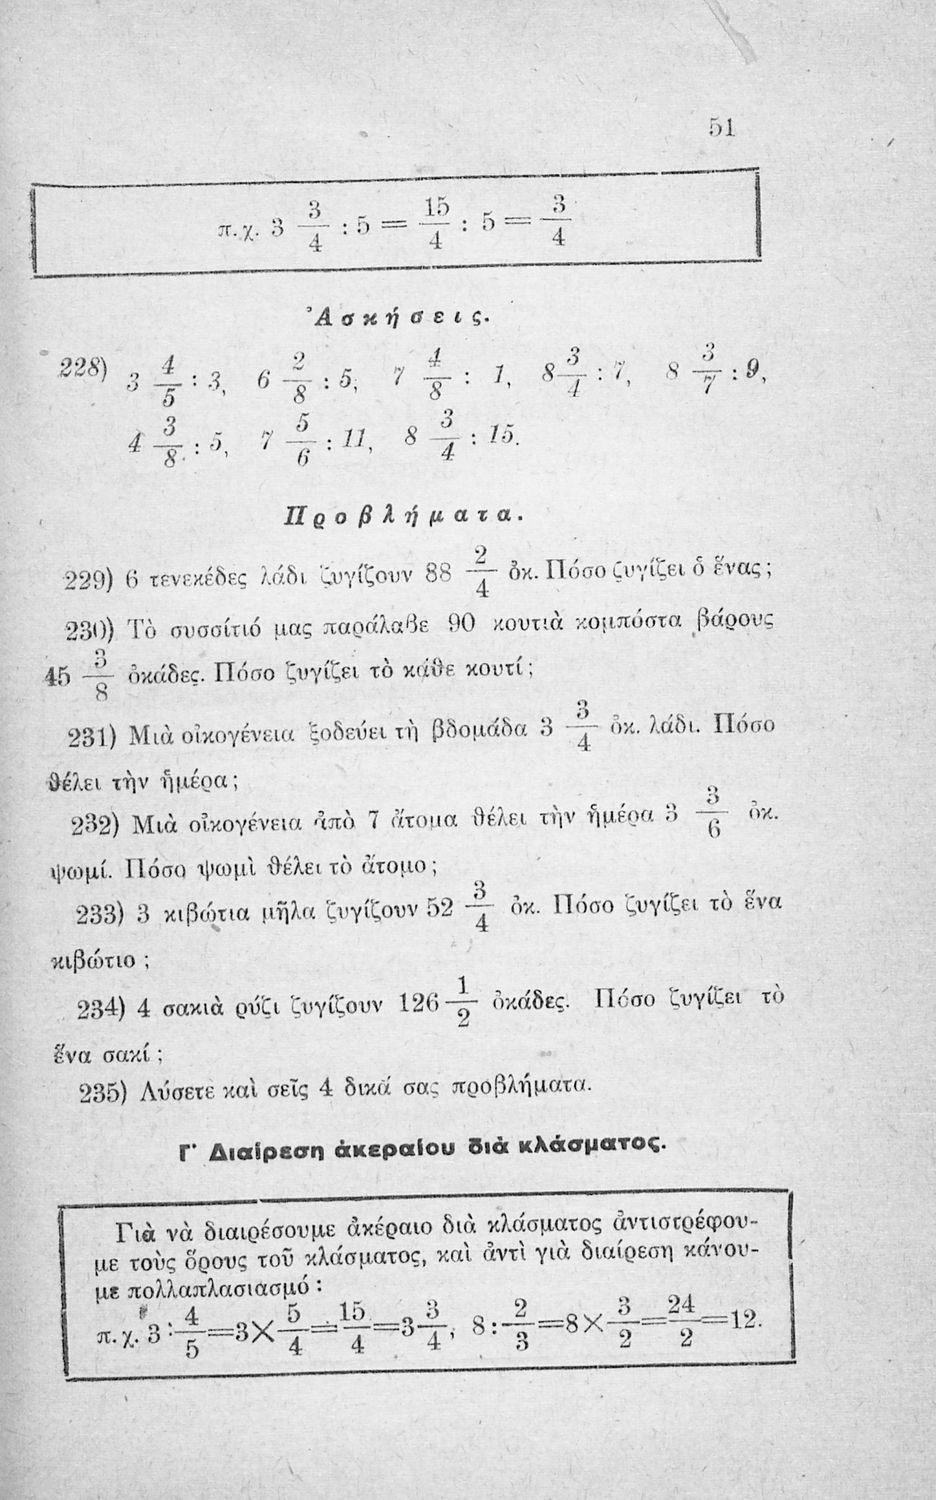 51
π.χ. 3 3/4 : 5 = 15/4 : 5 = 3/4
Ἀσκήσεις.
228) 3 4/5 : 3, 6 2/8 : 5, 7 4/8 : 7, 8 3/4 : 7, 8 3/7 : 9,
4 3/8 : 5, 7 5/6 : 11, 8 3/4 : 15.
Προβλήματα.
229) 6 τενεκέδες λάδι ζυγίζουν 88 2/4 ὀκ. Πόσο ζυγίζει ὁ ἕνας;
230) Τὸ συσσίτιό μας παράλαβε 90 κουτιὰ κομπόστα βάρους
45 3/8 ὀκάδες. Πόσο ζυγίζει τὸ κάθε κουτί;
231) Μιὰ οἰκογένεια ξοδεύει τὴ βδομάδα 3 3/4 ὀκ. λάδι. Πόσο
θέλει τὴν ἡμέρα;
232) Μιὰ οἰκογένεια ἀπὸ 7 ἄτομα θέλει τὴν ἡμέρα 3 3/6 ὀκ.
ψωμί. Πόσο ψωμὶ θέλει τὸ ἄτομο;
233) 3 κιβώτια μῆλα ζυγίζουν 52 3/4 ὀκ. Πόσο ζυγίζει τὸ ἕνα
κιβώτιο ;
234) 4 σακιὰ ρύζι ζυγίζουν 126 1/2 ὀκάδες. Πόσο ζυγίζει τὸ
ἕνα σακί ;
235) Λύσετε καὶ σεῖς 4 δικά σας προβλήματα.
Γ' Διαίρεση ἀκεραίου διὰ κλάσματος.
Γιὰ νὰ διαιρέσουμε ἀκέραιο διὰ κλάσματος ἀντιστρέφου-
με τοὺς ὅρους τοῦ κλάσματος, καὶ ἀντὶ γιὰ διαίρεση κάνου-
με πολλαπλασιασμό :
π.χ. 3 : 4/5 = 3 × 5/4 = 15/4 = 3 3/4, 8 : 2/3 = 8 × 3/2 = 24/2 = 12.